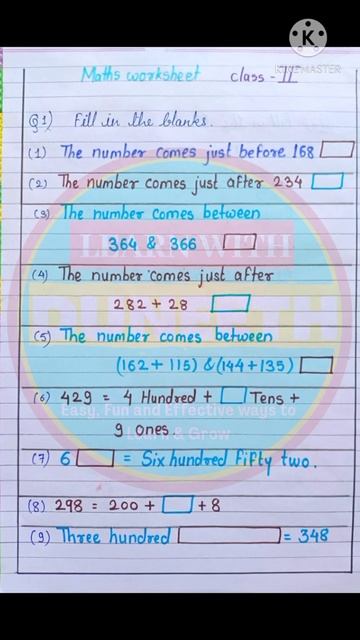 KINEMASTER
Maths worksheet class - II
Q1) Fill in the blanks.
(1) The number comes just before 168
(2) The number comes just after 234
(3) The number comes between
364 & 366
(4) The number comes just after
282 + 28
(5) The number comes between
(162 + 115) & (144 + 135)
(6) 429 = 4 Hundred + Tens +
9 ones.
(7) 6 = Six hundred fifty two.
(8) 298 = 200 + + 8
(9) Three hundred = 348
LEARN WITH
Easy, Fun and Effective ways to
Learn & Grow